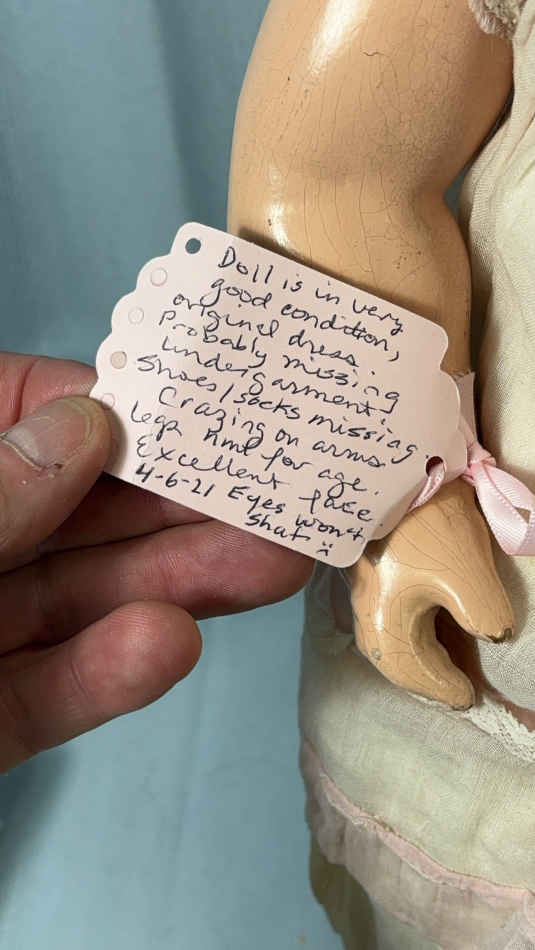 Doll is in very
good condition,
original dress.
Probably missing
undergarment.
Shoes/socks missing.
Crazing on arms
legs nml for age.
Excellent face
4-6-21 Eyes won't
shut :(